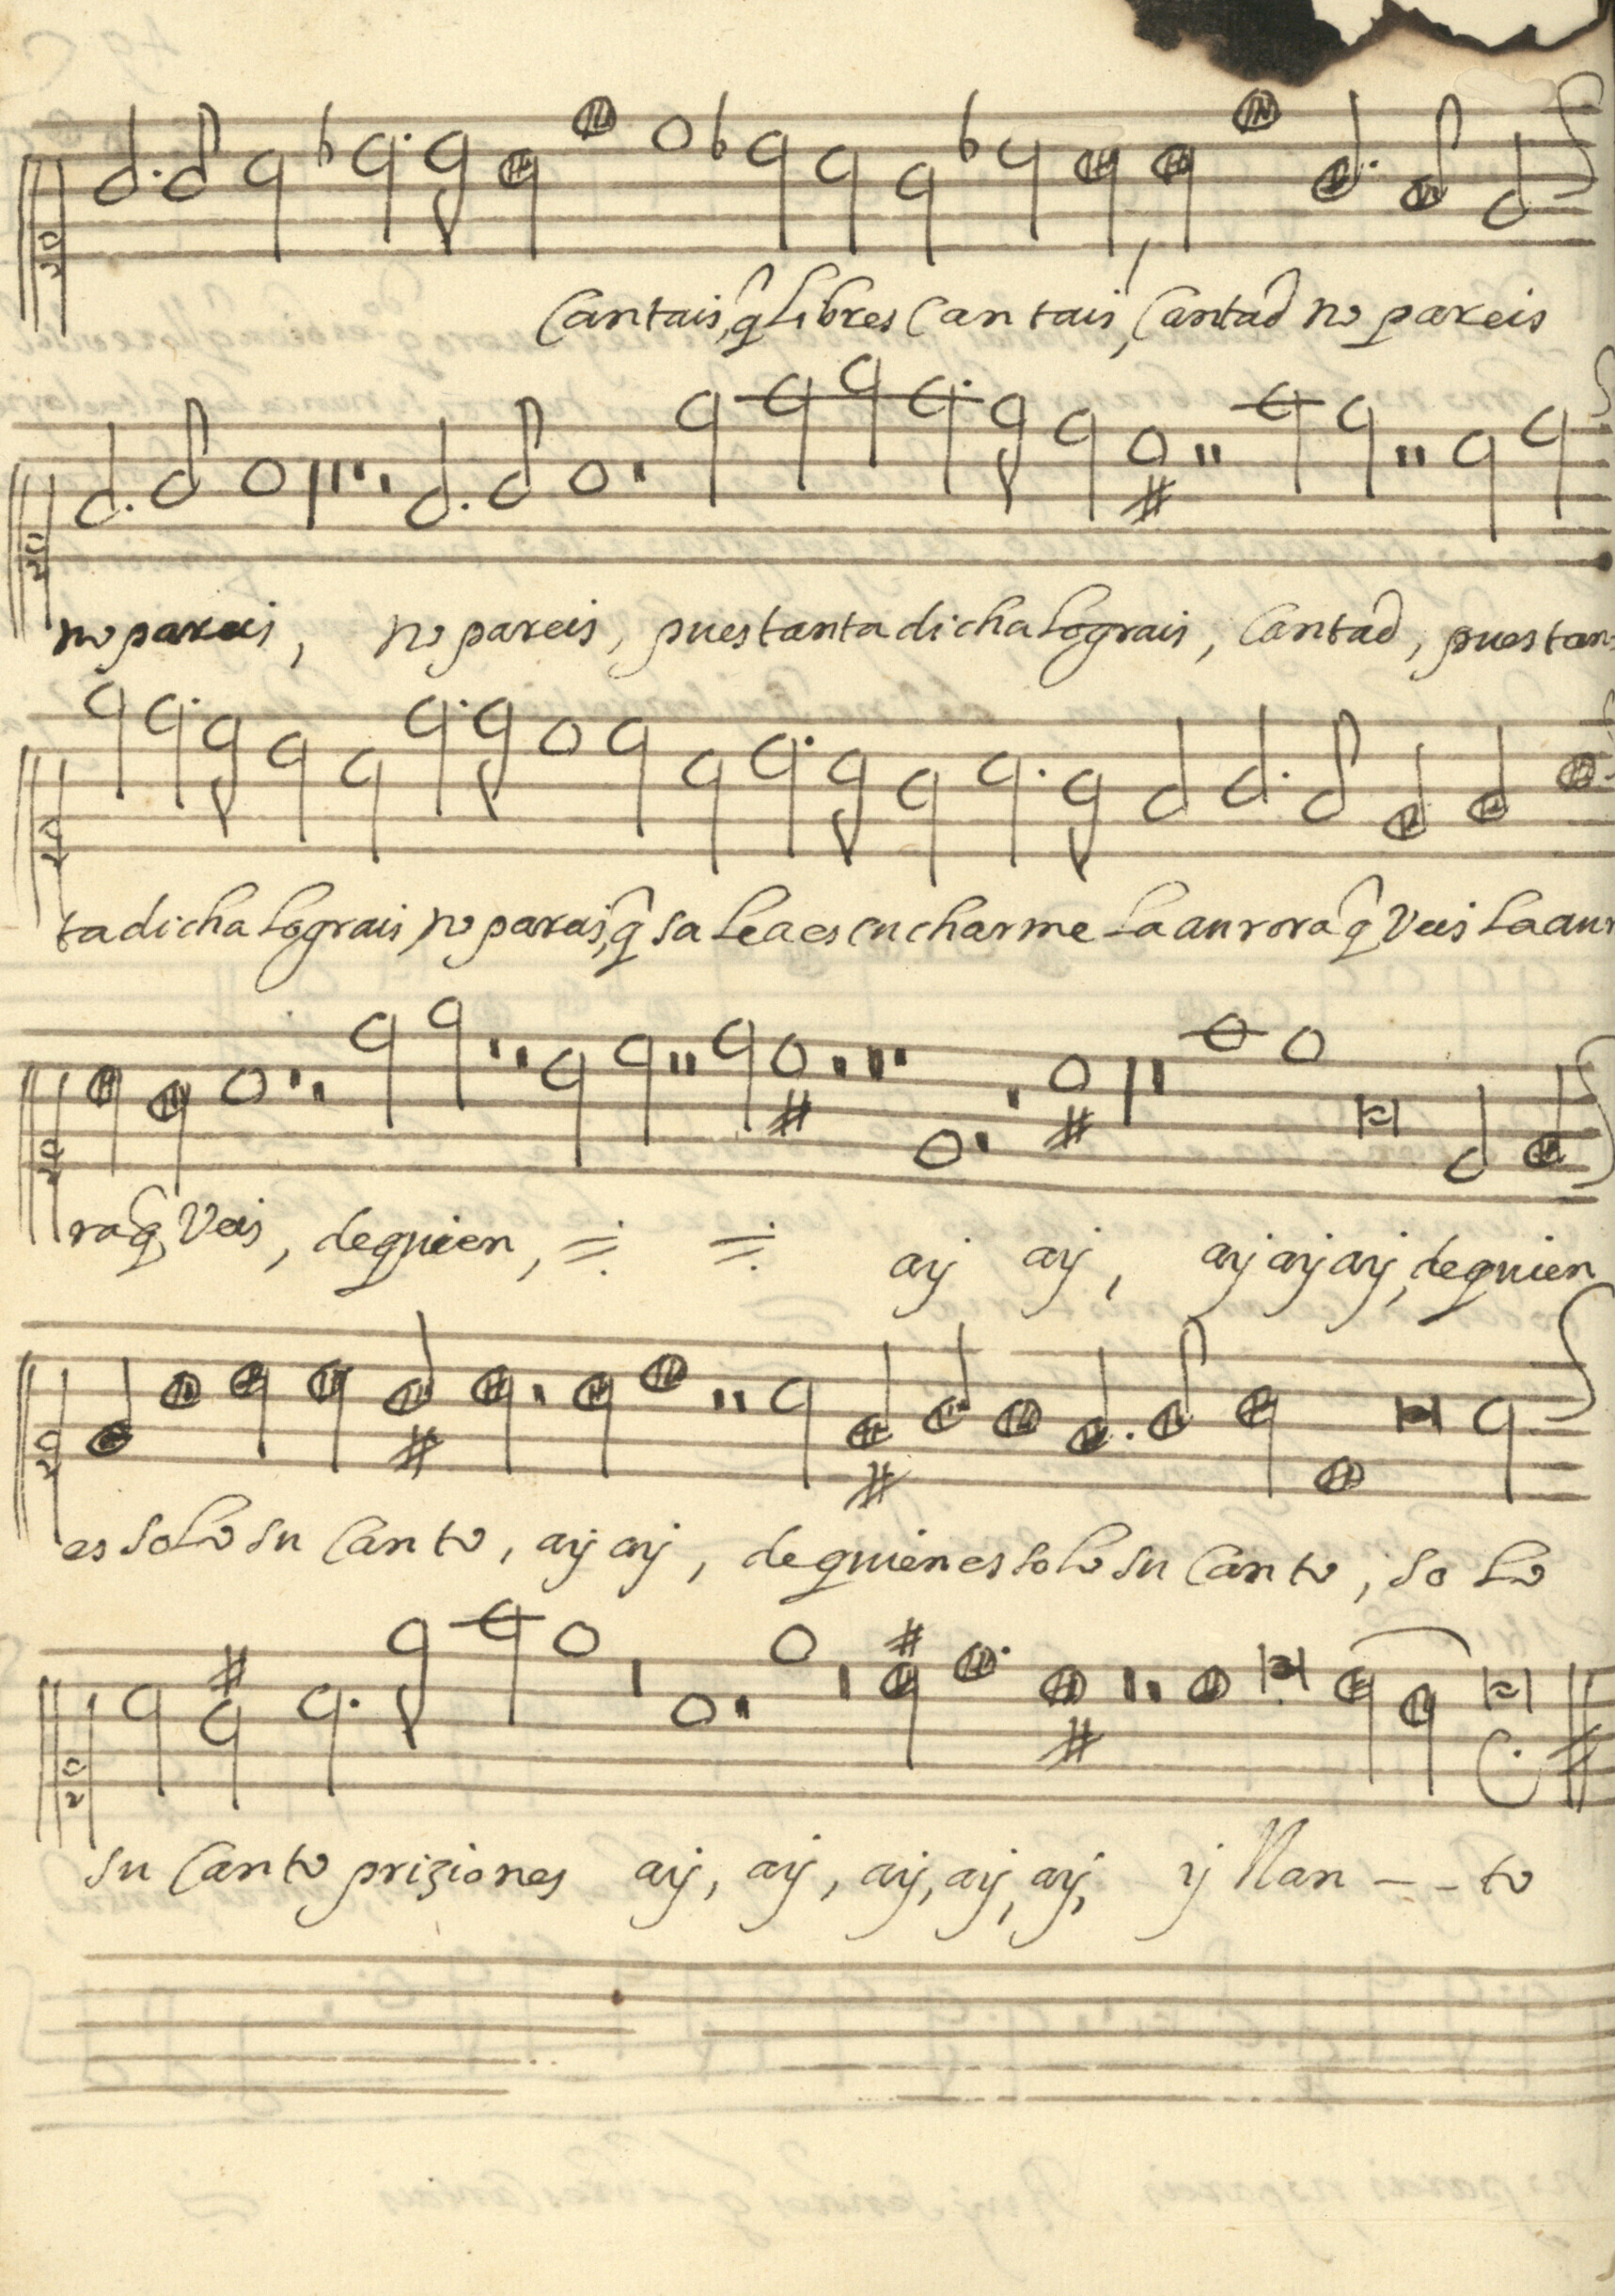 Cantais, q̂ libres Cantais, Cantad no pareis
no pareis, no pareis, pues tanta dicha lograis, Cantad, pues tan-
ta dicha lograis, no pareis, q̂ sale a escucharme la aurora q̂ Veis la au
ra q̂ Veis, de quien, ay ay, ay ay ay, de quien
es solo su Canto, ay ay, de quien es solo su Canto, so lo
su Canto priziones ay, ay, ay, ay, ay, y llan - - to